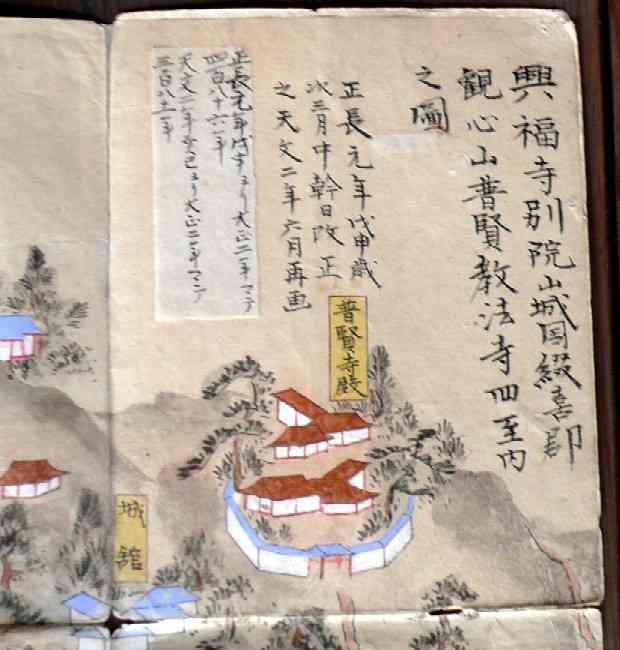 興福寺別院山城国綴喜郡
観心山普賢教法寺四至内
之圖
正長元年戊申歳
次三月中幹日改正
之天文二年六月再画
正長元年戊申ヨリ大正二年マデ
四百八十六年
天文二年癸巳ヨリ大正二年マデ
三百八十一年
普賢寺殿
城舘